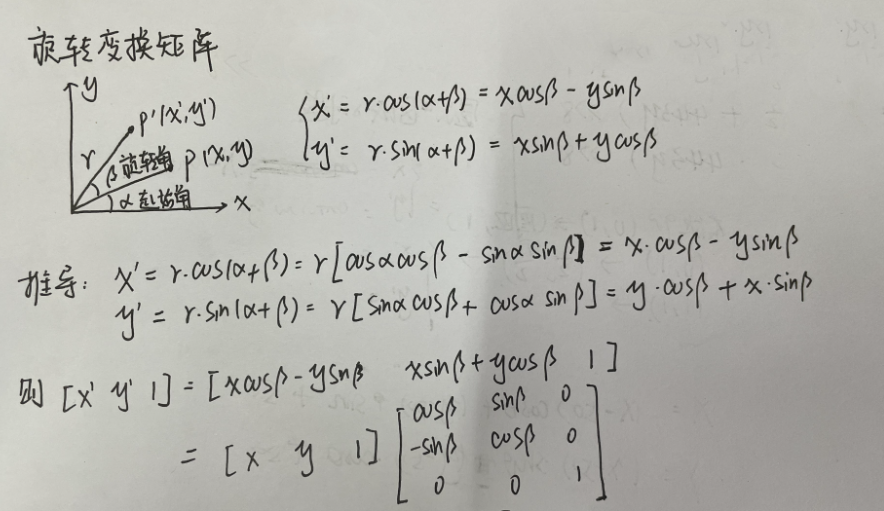 旋转变换矩阵
y
p'(x',y')
x' = r·cos(α+β) = xcosβ - ysinβ
r
β 旋转角
p(x,y)
y' = r·sin(α+β) = xsinβ + ycosβ
α 起始角
x
推导: x' = r·cos(α+β) = r[cosαcosβ - sinαsinβ] = x·cosβ - ysinβ
y' = r·sin(α+β) = r[sinαcosβ + cosα sinβ] = y·cosβ + x·sinβ
则 [x' y' 1] = [xcosβ - ysinβ xsinβ + ycosβ 1]
cosβ sinβ 0
= [x y 1] [-sinβ cosβ 0
0 0 1]